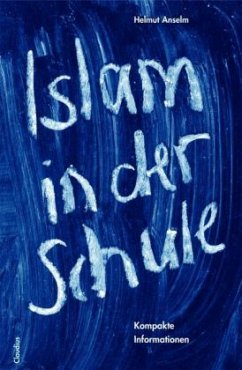 Helmut Anselm
Islam
in der
Schule
Kompakte
Informationen
Claudius